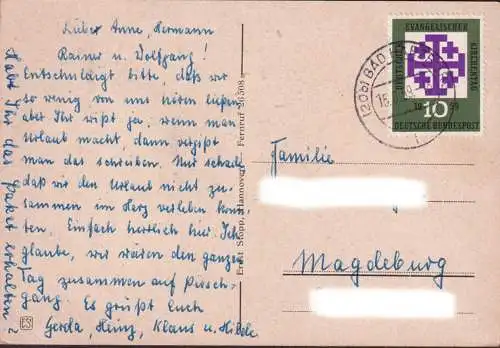 Lieber Anne, Hermann
Rainer u. Wolfgang!
Entschuldigt bitte, daß wir
so wenig von uns hören ließen,
aber Ihr wißt ja, wenn man
Urlaub macht, dann vergißt
man das schreiben. Nur schade
daß wir den Urlaub nicht zu-
sammen im Harz verleben konn-
ten. Einfach herrlich hier. Ich
glaube, wir wären den ganzen
Tag zusammen auf Pirsch-
gang. Es grüßt Euch
Gerda, Heinz, Klaus u.
Habt Ihr das Paket erhalten?
ES
Ernst Stopp, Hannover, Fernruf 26508
(20b) BAD
EVANGELISCHER
DEUTSCHER
KIRCHENTAG
10
DEUTSCHE BUNDESPOST
Familie
Magdeburg